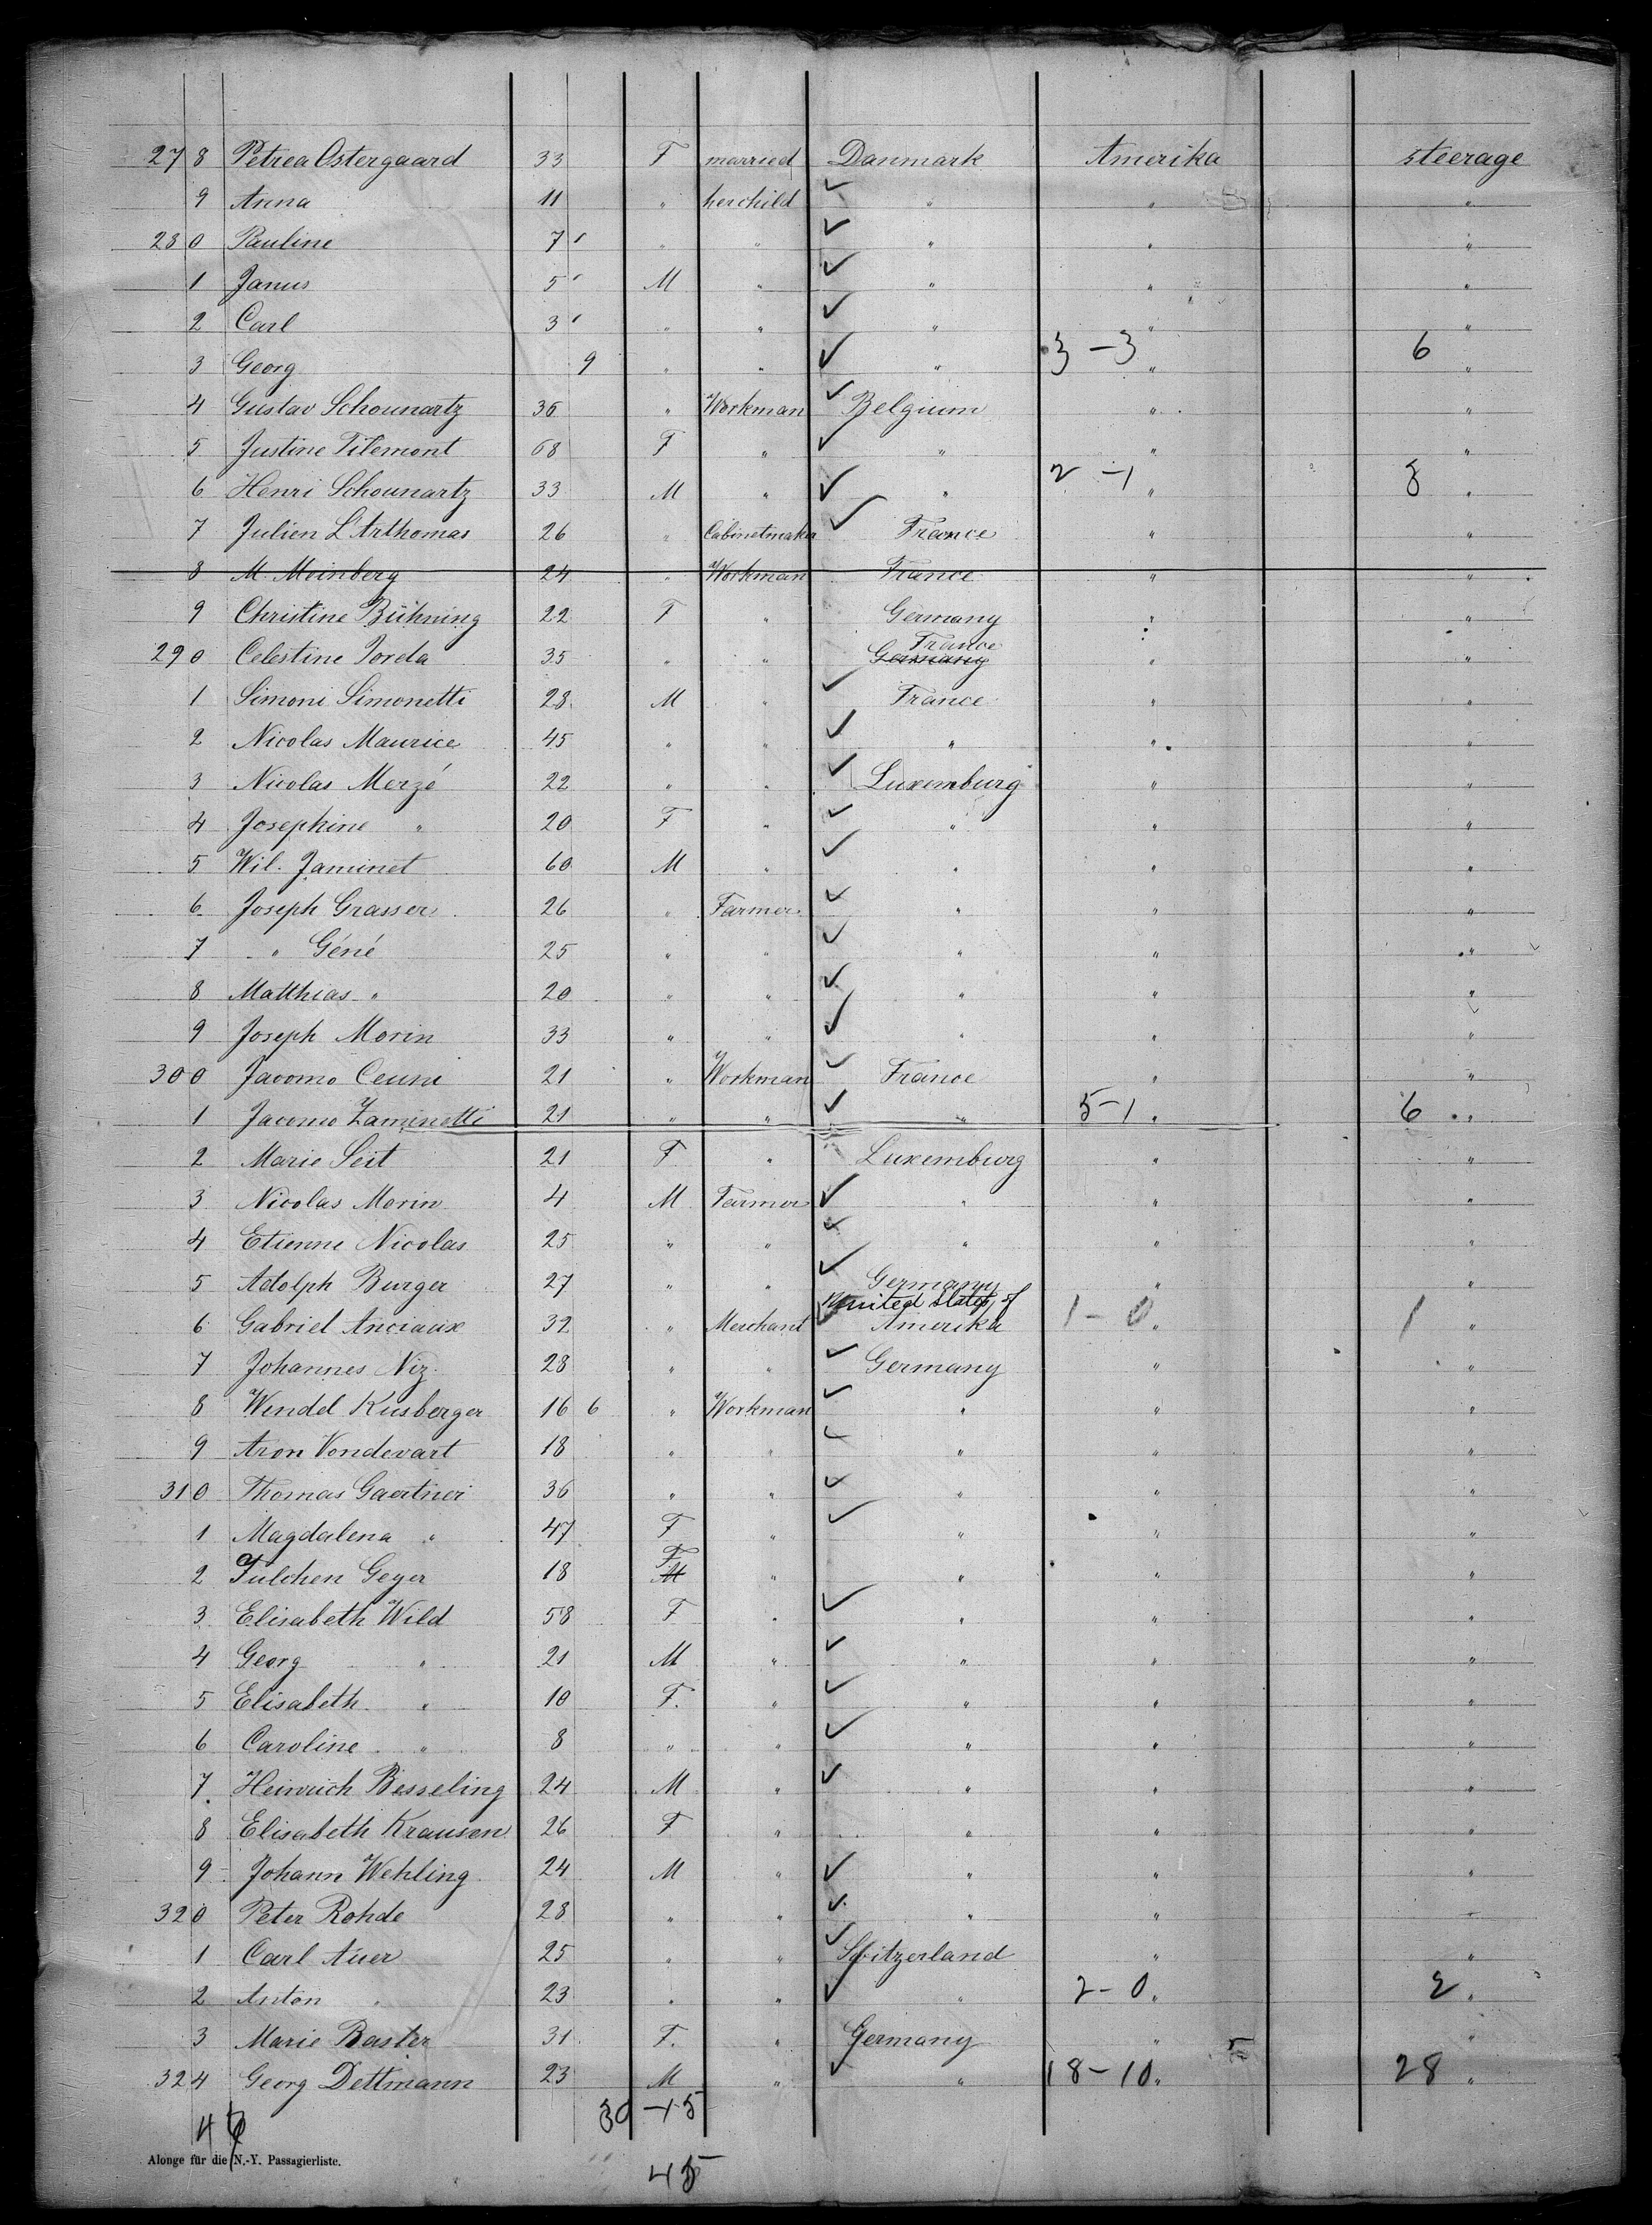 278 Petrea Ostergaard 33 F married Danmark Amerika steerage
9 Anna 11 " her child " " "
280 Pauline 7 " " " " "
1 Janus 5 M " " " "
2 Carl 3 " " " " "
3 Georg 9 " " " 3-3 " 6 "
4 Gustav Schounartz 36 " Workman Belgium " "
5 Justine Tilemont 68 F " " " "
6 Henri Schounartz 33 M " " 2-1 " 8 "
7 Julien L'Arthomas 26 " Cabinetmaker France " "
8 M. Meinberg 24 " Workman France " "
9 Christine Bühning 22 F " Germany " "
290 Celestine Joreda 35 " " France Germany " "
1 Simoni Simonetti 28 M " France " "
2 Nicolas Maurice 45 " " " " "
3 Nicolas Merzé 22 " " Luxemburg " "
4 Josephine " 20 F " " " "
5 Wil. Jaminet 60 M " " " "
6 Joseph Grasser 26 " Farmer " " "
7 " Géné 25 " " " " "
8 Matthias " 20 " " " " "
9 Joseph Morin 33 " " " " "
300 Jacomo Ceuni 21 " Workman France " "
1 Jacomo Zaminetti 21 " " " 5-1 " 6 "
2 Marie Seit 21 F " Luxemburg " "
3 Nicolas Morin 4 M Farmer " " "
4 Etienne Nicolas 25 " " " " "
5 Adolph Burger 27 " " Germany " "
6 Gabriel Anciaux 32 " Merchant United States of Amerika 1-0 " 1 "
7 Johannes Niz 28 " " Germany " "
8 Wendel Kusberger 16 6 " Workman " " "
9 Aron Vondevart 18 " " " " "
310 Thomas Gaertner 36 " " " " "
1 Magdalena " 47 F " " " "
2 Julchen Geyer 18 F M " " " "
3 Elisabeth Wild 58 F " " " "
4 Georg " 21 M " " " "
5 Elisabeth " 10 F. " " " "
6 Caroline " 8 " " " " "
7 Heinrich Besseling 24 M " " " "
8 Elisabeth Krausen 26 F " " " "
9 Johann Wehling 24 M " " " "
320 Peter Rohde 28 " " " " "
1 Carl Auer 25 " " Switzerland " "
2 Anton " 23 " " " 2-0 " 2 "
3 Marie Baster 31 F. " Germany " 5 "
324 Georg Dettmann 23 M " " 18-10 " 28 "
30-15
Alonge für die N.-Y. Passagierliste.
45